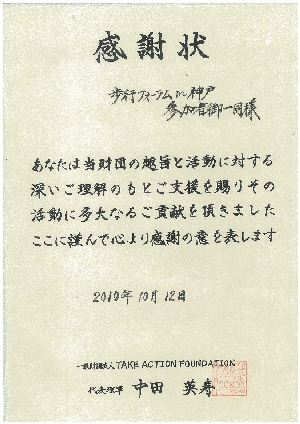 感謝状
歩行フォーラム in 神戸
参加者御一同様
あなたは当財団の趣旨と活動に対する
深いご理解のもとご支援を賜りその
活動に多大なるご貢献を頂きました
ここに謹んで心より感謝の意を表します
2010年10月12日
一般財団法人 TAKE ACTION FOUNDATION
代表理事 中田 英寿